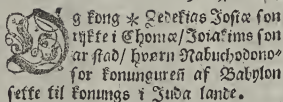 Og kong * Zedekias Josie son
rijkte i Chonie/Joiakims son
ar stad/ hvørn Nabuchodono⸗
sor konungureñ af Babylon
sette til konungs i Juda lande.